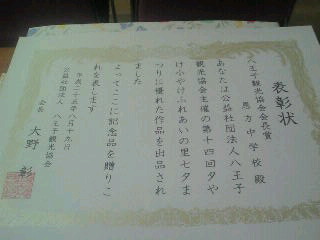 表彰状
八王子観光協会会長賞
恩方中学校 殿
あなたは公益社団法人八王子
観光協会主催の第十四回夕や
け小やけふれあいの里七夕ま
つりに優れた作品を出品され
ました
よってここに記念品を贈りこ
れを表します
平成二十五年八月十九日
公益社団法人 八王子観光協会
会長 大野 彰